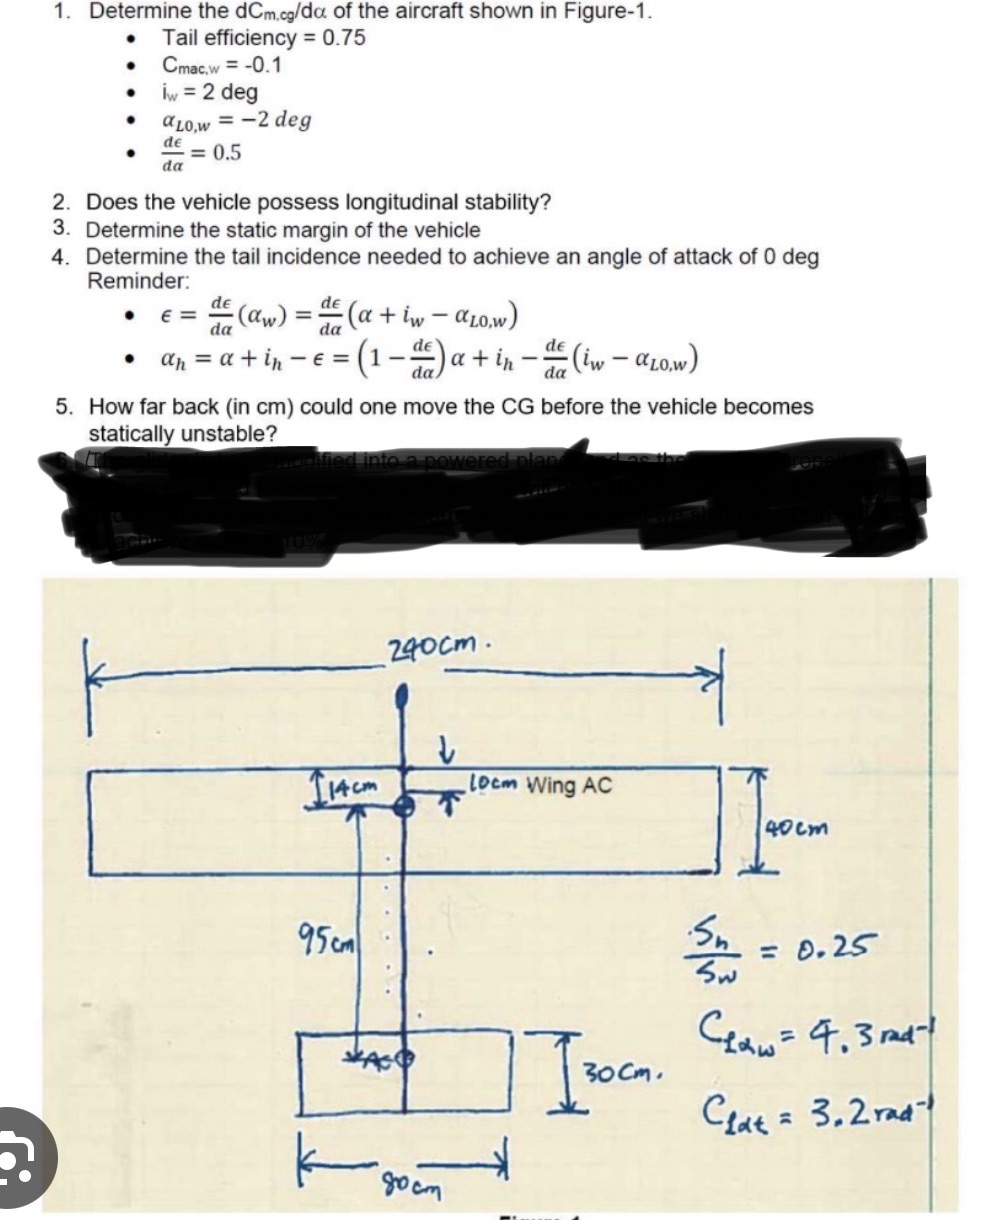 1. Determine the dCm,cg/dα of the aircraft shown in Figure-1.
• Tail efficiency = 0.75
• Cmac,w = -0.1
• iw = 2 deg
• αL0,w = −2 deg
• dϵ/dα = 0.5
2. Does the vehicle possess longitudinal stability?
3. Determine the static margin of the vehicle
4. Determine the tail incidence needed to achieve an angle of attack of 0 deg
Reminder:
• ϵ = dϵ/dα (αw) = dϵ/dα (α + iw − αL0,w)
• αh = α + ih − ϵ = (1 − dϵ/dα) α + ih − dϵ/dα (iw − αL0,w)
5. How far back (in cm) could one move the CG before the vehicle becomes
statically unstable?
into a powered
240cm.
14cm
10cm Wing AC
40cm
95cm
Sh/Sw = 0.25
CLαw = 4.3 rad-1
AC
30cm.
CLαt = 3.2 rad-1
80cm